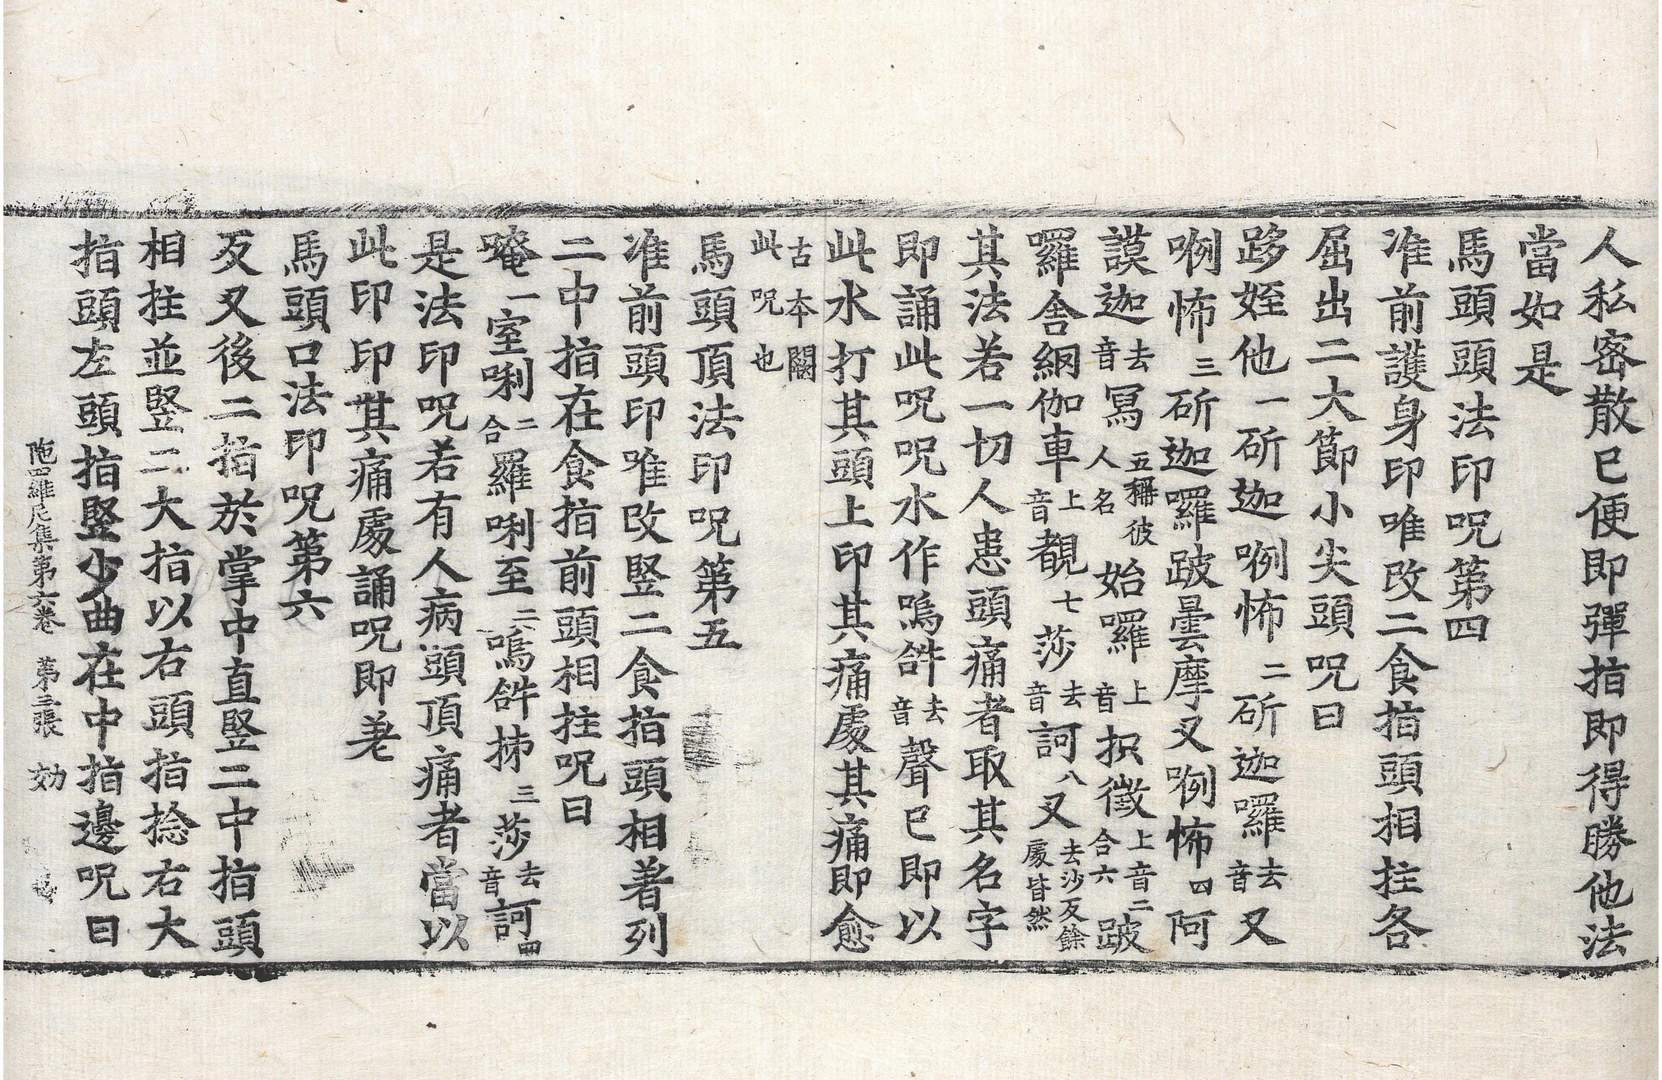 人私密散已便即彈指即得勝他法
當如是
馬頭頭法印呪第四
准前護身印唯改二食指頭相拄各
屈出二大節小尖頭呪曰
跢姪他一斫迦唎怖二斫迦囉去音叉
唎怖三斫迦囉跛曇摩叉唎怖四阿
謨迦去音冩五稱彼人名始囉上音抧徵上音二合六跛
囉舍網伽車上音覩七莎去音訶八叉去沙反餘處皆然
其法若一切人患頭痛者取其名字
即誦此呪呪水作嗚𤙖去音聲已即以
此水打其頭上印其痛處其痛即愈
古本闕此呪也
馬頭頂法印呪第五
准前頭印唯改竪二食指頭相著列
二中指在食指前頭相拄呪曰
唵一室唎二合羅唎至二嗚𤙖抪三莎去音訶四
是法印呪若有人病頭頂痛者當以
此印印其痛處誦呪即差
馬頭口法印呪第六
反叉後二指於掌中直竪二中指頭
相拄並竪二大指以右頭指捻右大
指頭左頭指竪少曲在中指邊呪曰
陁羅尼集第六卷 第三張 効